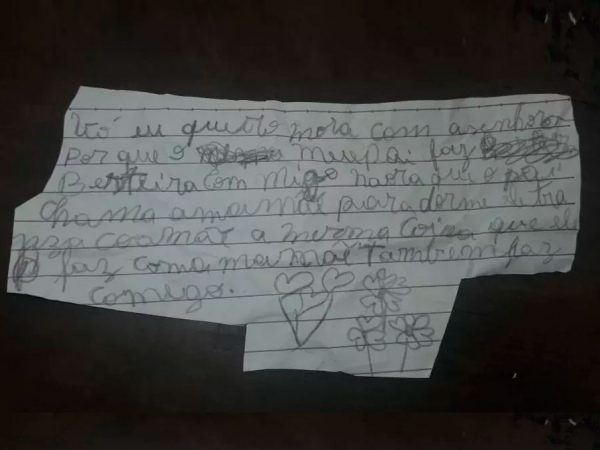 Vó eu quero mora com asenhora
Por que o meu pai faz
Besteira com migo naora que o pai
chama a mamãe para dormi e tra
nza coamãe a mesma coisa que ele
faz coma mamãe Tambem faz
comigo.